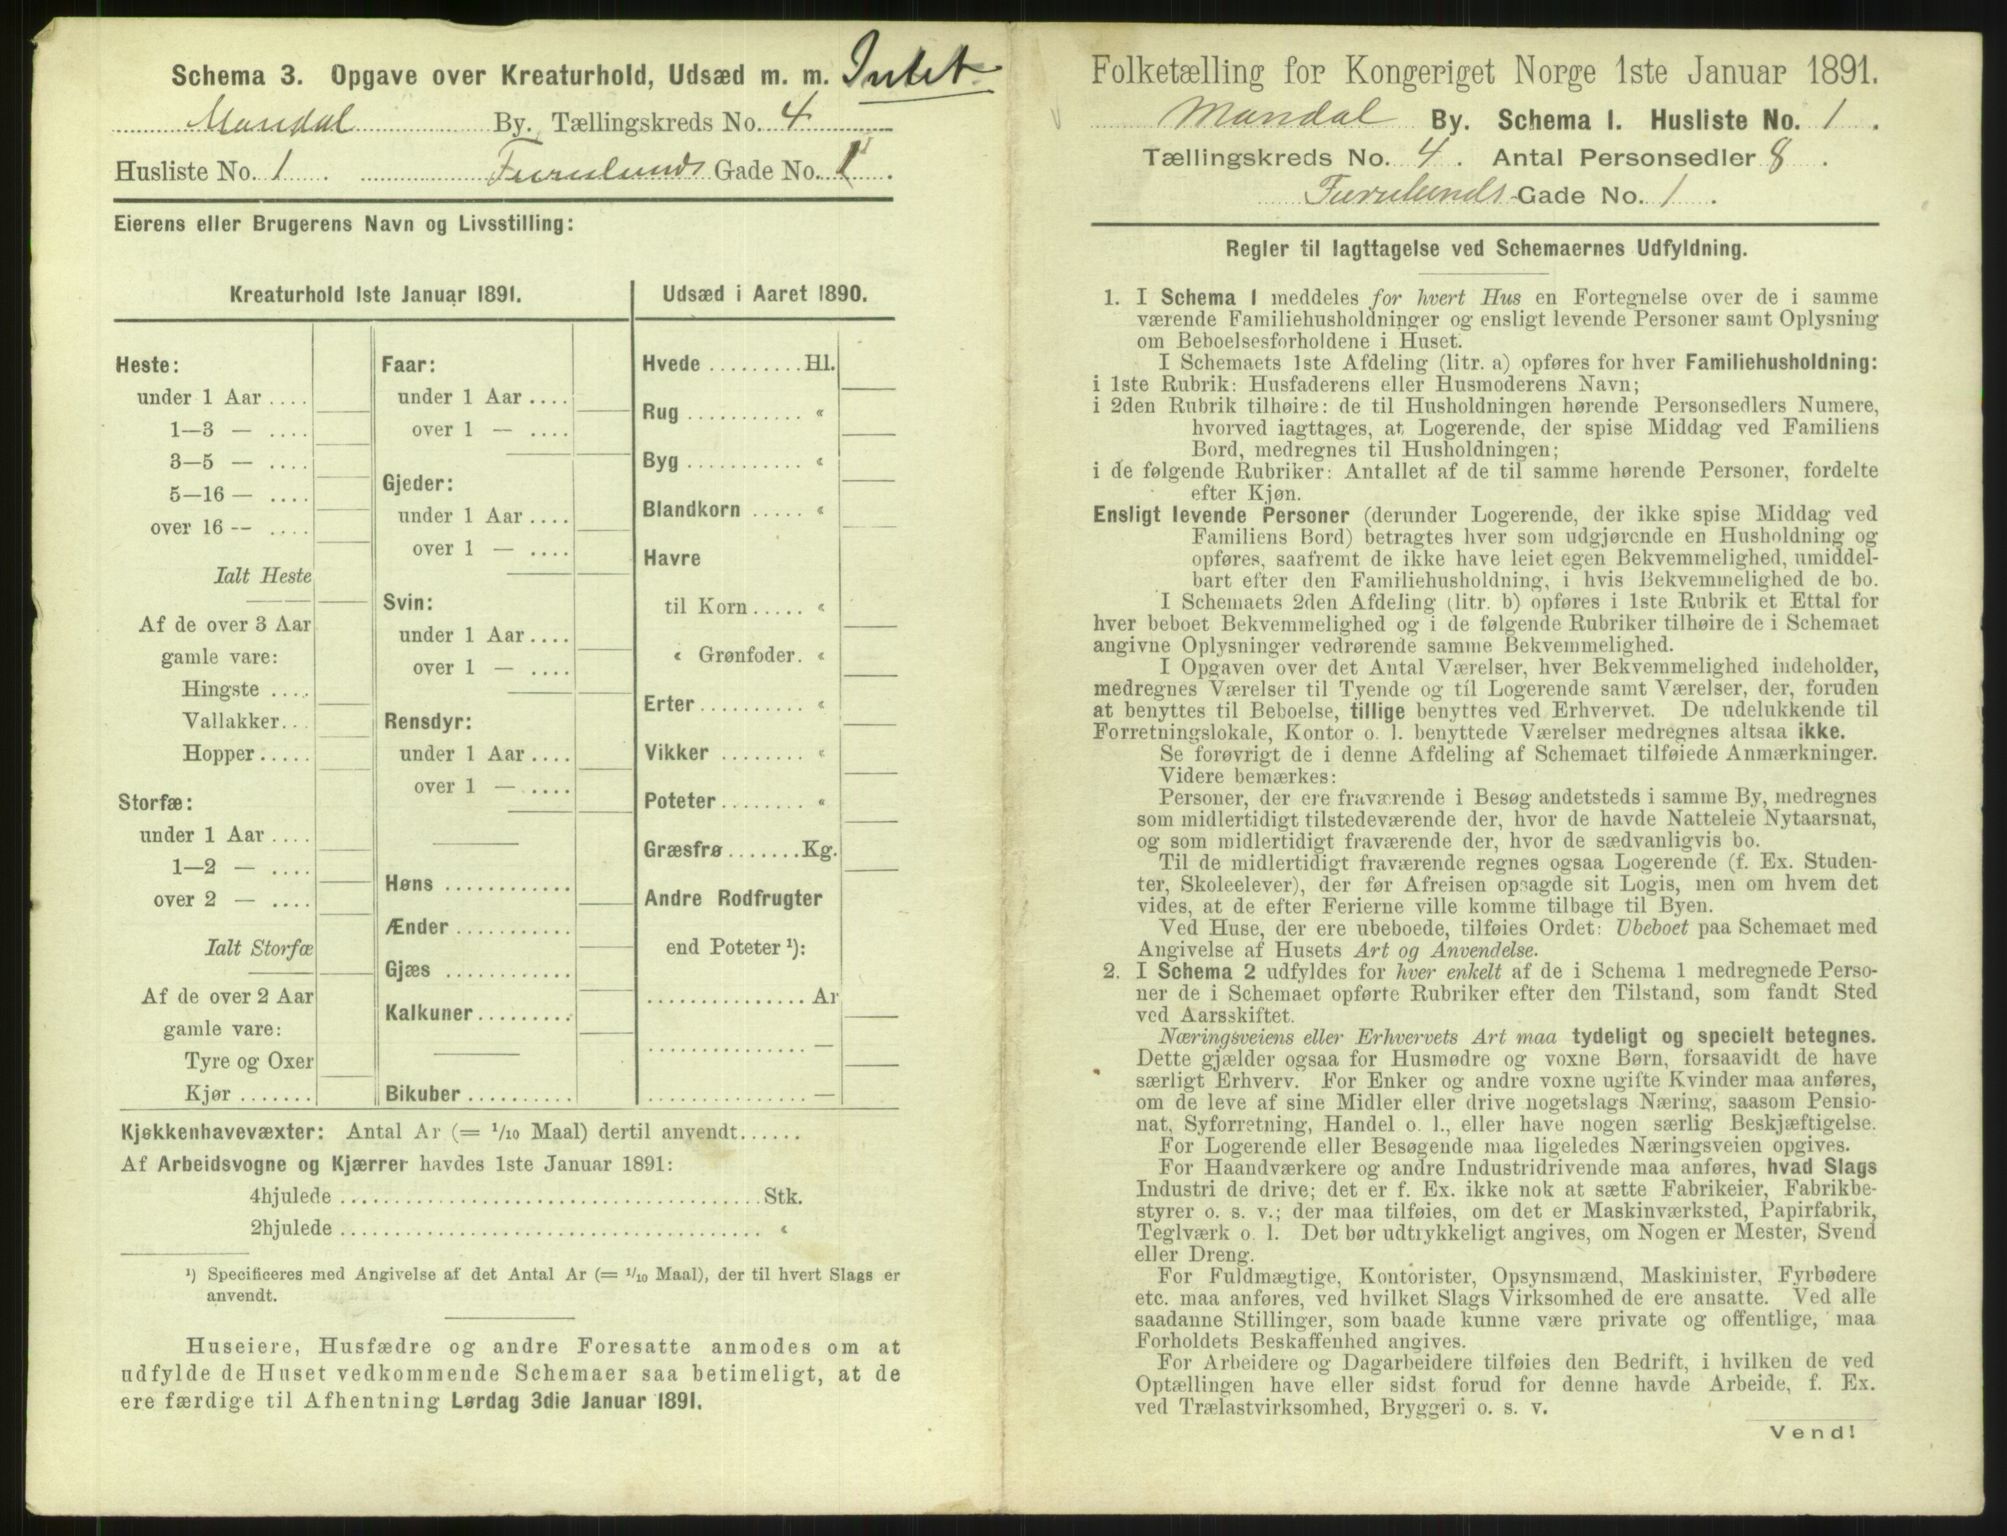 Schema 3. Opgave over Kreaturhold, Udsæd m. m. Intet
Mandal By. Tællingskreds No. 4
Husliste No. 1. Furulunds Gade No. 1.
Eierens eller Brugerens Navn og Livsstilling:
Kreaturhold 1ste Januar 1891.
Heste:
under 1 Aar ....
1—3 — ....
3—5 — ....
5—16 — ....
over 16 -- ....
Ialt Heste
Af de over 3 Aar
gamle vare:
Hingste ....
Vallakker...
Hopper.....
Storfæ:
under 1 Aar ....
1—2 — ....
over 2 — ....
Ialt Storfæ
Af de over 2 Aar
gamle vare:
Tyre og Oxer
Kjør .......
Faar:
under 1 Aar ....
over 1 — ....
Gjeder:
under 1 Aar ....
over 1 — ....
Svin:
under 1 Aar ....
over 1 — ....
Rensdyr:
under 1 Aar ....
over 1 — ....
Høns ............
Ænder ...........
Gjæs ............
Kalkuner.........
Bikuber ..........
Udsæd i Aaret 1890.
Hvede .........Hl.
Rug ........... «
Byg ........... «
Blandkorn ..... «
Havre
til Korn ..... «
« Grønfoder. «
Erter.......... «
Vikker ........ «
Poteter........ «
Græsfrø .......Kg.
Andre Rodfrugter
end Poteter ¹):
............... Ar
............... —
............... —
Kjøkkenhavevæxter: Antal Ar (= 1/10 Maal) dertil anvendt......
Af Arbeidsvogne og Kjærrer havdes 1ste Januar 1891:
4hjulede ........................................Stk.
2hjulede ........................................ «
¹) Specificeres med Angivelse af det Antal Ar (= 1/10 Maal), der til hvert Slags er
anvendt.
Huseiere, Husfædre og andre Foresatte anmodes om at
udfylde de Huset vedkommende Schemaer saa betimeligt, at de
ere færdige til Afhentning Lørdag 3die Januar 1891.
Folketælling for Kongeriget Norge 1ste Januar 1891.
Mandal By. Schema I. Husliste No. 1.
Tællingskreds No. 4. Antal Personsedler 8.
Furulunds-Gade No. 1.
Regler til Iagttagelse ved Schemaernes Udfyldning.
1. I Schema 1 meddeles for hvert Hus en Fortegnelse over de i samme
værende Familiehusholdninger og ensligt levende Personer samt Oplysning
om Beboelsesforholdene i Huset.
I Schemaets 1ste Afdeling (litr. a) opføres for hver Familiehusholdning:
i 1ste Rubrik: Husfaderens eller Husmoderens Navn;
i 2den Rubrik tilhøire: de til Husholdningen hørende Personsedlers Numere,
hvorved iagttages, at Logerende, der spise Middag ved Familiens
Bord, medregnes til Husholdningen;
i de følgende Rubriker: Antallet af de til samme hørende Personer, fordelte
efter Kjøn.
Ensligt levende Personer (derunder Logerende, der ikke spise Middag ved
Familiens Bord) betragtes hver som udgjørende en Husholdning og
opføres, saafremt de ikke have leiet egen Bekvemmelighed, umiddel-
bart efter den Familiehusholdning, i hvis Bekvemmelighed de bo.
I Schemaets 2den Afdeling (litr. b) opføres i 1ste Rubrik et Ettal for
hver beboet Bekvemmelighed og i de følgende Rubriker tilhøire de i Schemaet
angivne Oplysninger vedrørende samme Bekvemmelighed.
I Opgaven over det Antal Værelser, hver Bekvemmelighed indeholder,
medregnes Værelser til Tyende og til Logerende samt Værelser, der, foruden
at benyttes til Beboelse, tillige benyttes ved Erhvervet. De udelukkende til
Forretningslokale, Kontor o. l. benyttede Værelser medregnes altsaa ikke.
Se forøvrigt de i denne Afdeling af Schemaet tilføiede Anmærkninger.
Videre bemærkes:
Personer, der ere fraværende i Besøg andetsteds i samme By, medregnes
som midlertidigt tilstedeværende der, hvor de havde Natteleie Nytaarsnat,
og som midlertidigt fraværende der, hvor de sædvanligvis bo.
Til de midlertidigt fraværende regnes ogsaa Logerende (f. Ex. Studen-
ter, Skoleelever), der før Afreisen opsagde sit Logis, men om hvem det
vides, at de efter Ferierne ville komme tilbage til Byen.
Ved Huse, der ere ubeboede, tilføies Ordet: Ubeboet paa Schemaet med
Angivelse af Husets Art og Anvendelse.
2. I Schema 2 udfyldes for hver enkelt af de i Schema 1 medregnede Perso-
ner de i Schemaet opførte Rubriker efter den Tilstand, som fandt Sted
ved Aarsskiftet.
Næringsveiens eller Erhvervets Art maa tydeligt og specielt betegnes.
Dette gjælder ogsaa for Husmødre og voxne Børn, forsaavidt de have
særligt Erhverv. For Enker og andre voxne ugifte Kvinder maa anføres,
om de leve af sine Midler eller drive nogetslags Næring, saasom Pensio-
nat, Syforretning, Handel o. l., eller have nogen særlig Beskjæftigelse.
For Logerende eller Besøgende maa ligeledes Næringsveien opgives.
For Haandværkere og andre Industridrivende maa anføres, hvad Slags
Industri de drive; det er f. Ex. ikke nok at sætte Fabrikeier, Fabrikbe-
styrer o. s. v.; der maa tilføies, om det er Maskinværksted, Papirfabrik,
Teglværk o. l. Det bør udtrykkeligt angives, om Nogen er Mester, Svend
eller Dreng.
For Fuldmægtige, Kontorister, Opsynsmænd, Maskinister, Fyrbødere
etc. maa anføres, ved hvilket Slags Virksomhed de ere ansatte. Ved alle
saadanne Stillinger, som baade kunne være private og offentlige, maa
Forholdets Beskaffenhed angives.
For Arbeidere og Dagarbeidere tilføies den Bedrift, i hvilken de ved
Optællingen have eller sidst forud for denne havde Arbeide, f. Ex.
ved Trælastvirksomhed, Bryggeri o. s. v.
Vend!